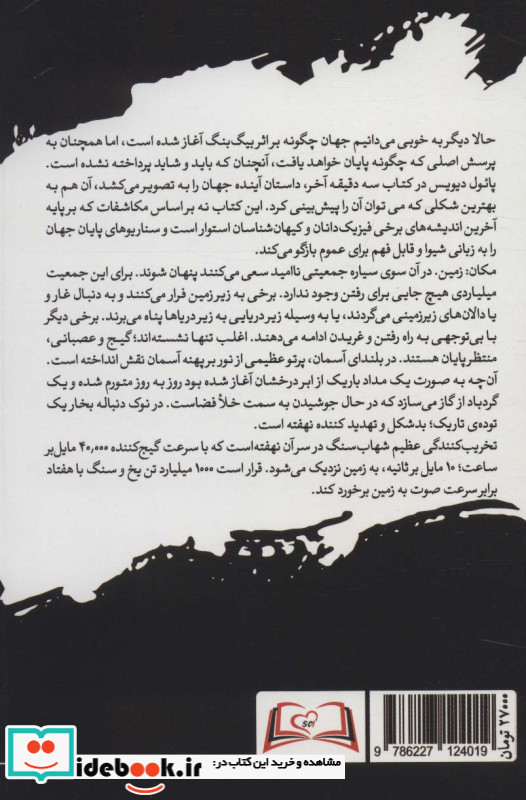 حالا دیگر به خوبی می‌دانیم جهان چگونه بر اثر بیگ‌بنگ آغاز شده است، اما همچنان به
پرسش اصلی که چگونه پایان خواهد یافت، آنچنان که باید و شاید پرداخته نشده است.
پائول دیویس در کتاب سه دقیقه آخر، داستان آینده جهان را به تصویر می‌کشد، آن هم به
بهترین شکلی که می توان آن را پیش‌بینی کرد. این کتاب نه بر اساس مکاشفات که بر پایه
آخرین اندیشه‌های برخی فیزیک‌دانان و کیهان‌شناسان استوار است و سناریوهای پایان جهان
را به زبانی شیوا و قابل فهم برای عموم بازگو می‌کند.
مکان: زمین. در آن سوی سیاره جمعیتی ناامید سعی می‌کنند پنهان شوند. برای این جمعیت
میلیاردی هیچ جایی برای رفتن وجود ندارد. برخی به زیر زمین فرار می‌کنند و به دنبال غار و
یا دالان‌های زیرزمینی می‌گردند، یا به وسیله زیردریایی به زیر دریاها پناه می‌برند. برخی دیگر
با بی‌توجهی به راه رفتن و غریدن ادامه می‌دهند. اغلب تنها نشسته‌اند؛ گیج و عصبانی،
منتظر پایان هستند. در بلندای آسمان، پرتو عظیمی از نور بر پهنه آسمان نقش انداخته است.
آن‌چه به صورت یک مداد باریک از ابر درخشان آغاز شده بود روز به روز متورم شده و یک
گردباد از گاز می‌سازد که در حال جوشیدن به سمت خلأ فضاست. در نوک دنباله بخار یک
توده‌ی تاریک؛ بدشکل و تهدید کننده نهفته است.
تخریب‌کنندگی عظیم شهاب‌سنگ در سر آن نهفته‌است که با سرعت گیج‌کننده ۴۰٫۰۰۰ مایل بر
ساعت؛ ۱۰ مایل بر ثانیه، به زمین نزدیک می‌شود. قرار است ۱۰۰۰ میلیارد تن یخ و سنگ با هفتاد
برابر سرعت صوت به زمین برخورد کند.
sci
۲۷۰۰۰ تومان
9 786227 124019
idebook.ir
مشاهده و خرید این کتاب در: